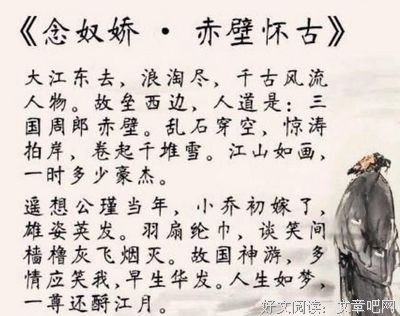 《念奴娇 · 赤壁怀古》
大江东去，浪淘尽，千古风流
人物。故垒西边，人道是：三
国周郎赤壁。乱石穿空，惊涛
拍岸，卷起千堆雪。江山如画，
一时多少豪杰。
遥想公瑾当年，小乔初嫁了，
雄姿英发。羽扇纶巾，谈笑间
樯橹灰飞烟灭。故国神游，多
情应笑我，早生华发。人生如梦，
一尊还酹江月。
好文阅读：文章吧网